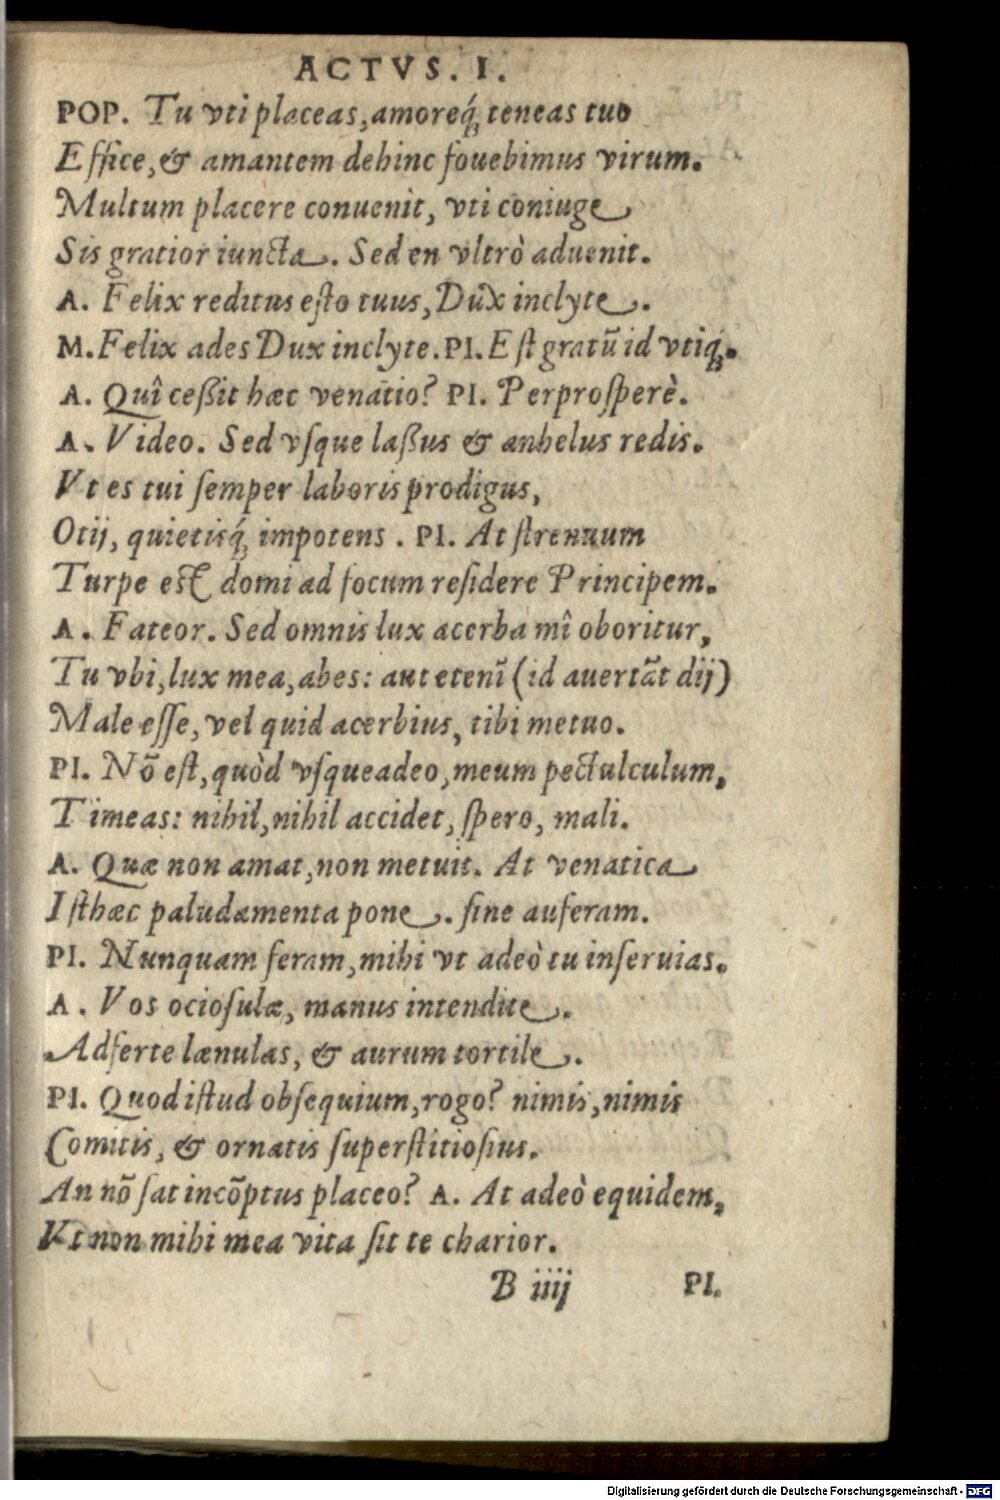 ACTVS. I.
POP. Tu vti placeas, amoreq́; teneas tuo
Effice, & amantem dehinc fouebimus virum.
Multum placere conuenit, vti coniuge
Sis gratior iuncta. Sed en vltrò aduenit.
A. Felix reditus esto tuus, Dux inclyte.
M. Felix ades Dux inclyte. PI. Est gratũ id vtiq́;.
A. Quî ceßit hæc venatio? PI. Perprosperè.
A. Video. Sed vsque laßus & anhelus redis.
Vt es tui semper laboris prodigus,
Otij, quietisq́; impotens. PI. At strenuum
Turpe est domi ad focum residere Principem.
A. Fateor. Sed omnis lux acerba mî oboritur,
Tu vbi, lux mea, abes: aut etenĩ (id auertãt dij)
Male esse, vel quid acerbius, tibi metuo.
PI. Nõ est, quòd vsqueadeo, meum pectulculum,
Timeas: nihil, nihil accidet, spero, mali.
A. Quæ non amat, non metuit. At venatica
Isthæc paludamenta pone. sine auferam.
PI. Nunquam feram, mihi vt adeò tu inseruias.
A. Vos ociosulæ, manus intendite.
Adferte lænulas, & aurum tortile.
PI. Quod istud obsequium, rogo? nimis, nimis
Comitis, & ornatis superstitiosius.
An nõ sat incõptus placeo? A. At adeò equidem,
Vt non mihi mea vita sit te charior.
B iiij PI.
Digitalisierung gefördert durch die Deutsche Forschungsgemeinschaft - DFG